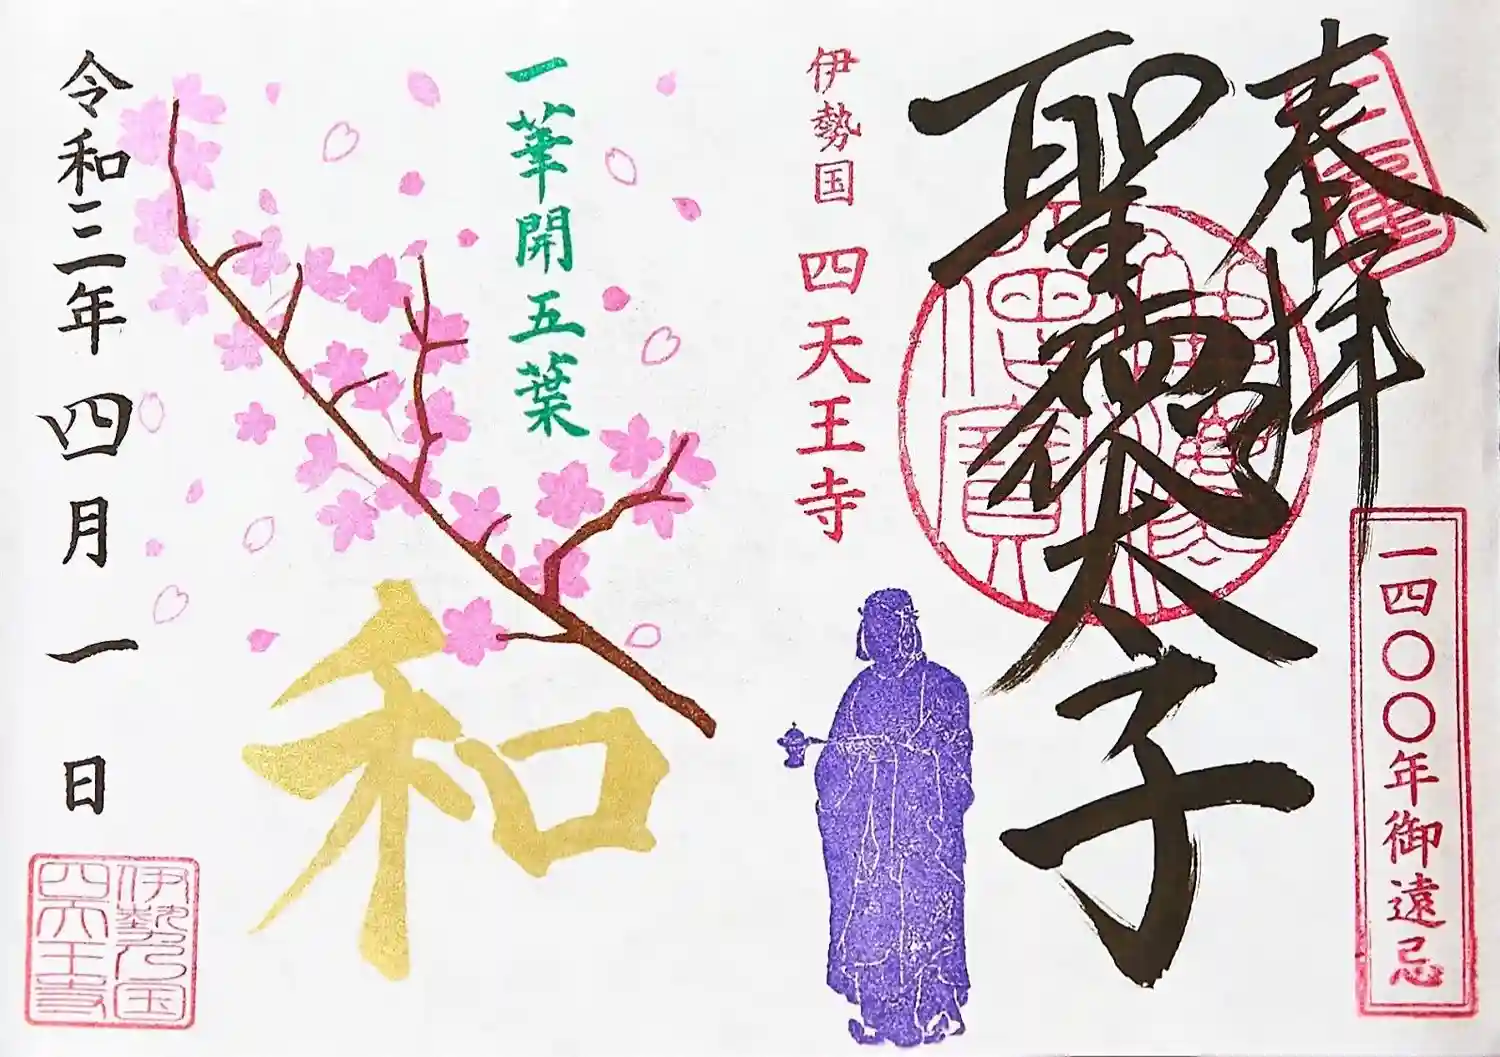 奉拝
一四〇〇年御遠忌
聖徳太子
佛法僧寶
伊勢国 四天王寺
一華開五葉
和
令和三年 四月一日
伊勢乃国
四天王寺